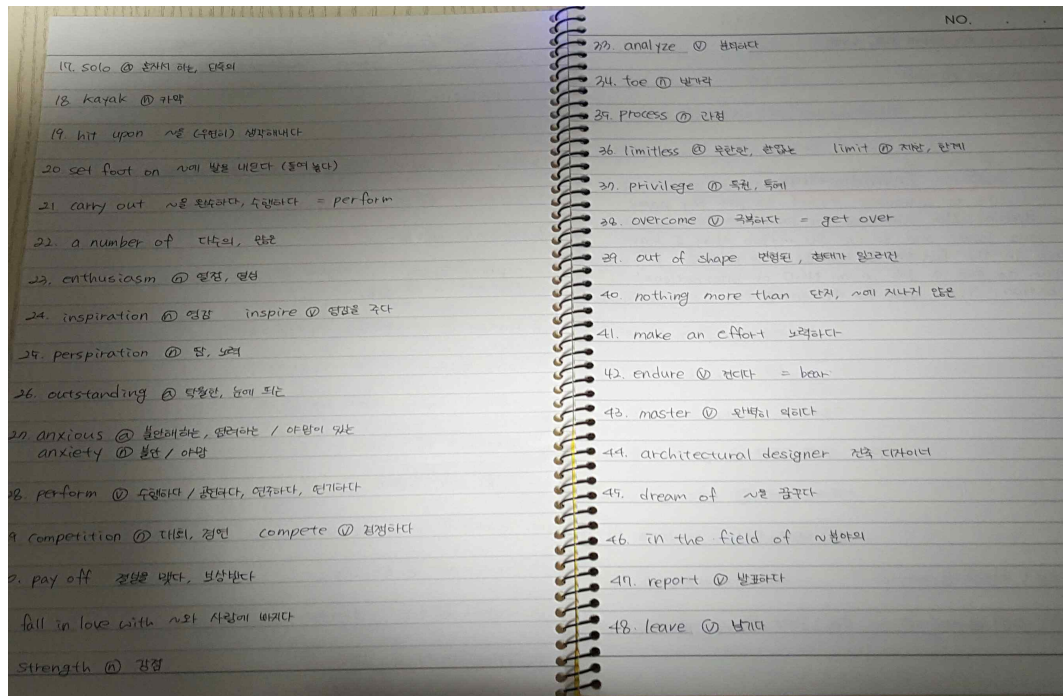 17. solo ⓐ 혼자서 하는, 단독의
18. kayak ⓝ 카약
19. hit upon ~을 (우연히) 생각해내다
20 set foot on ~에 발을 내딛다 (들여놓다)
21 carry out ~을 완수하다, 수행하다 = perform
22. a number of 다수의, 많은
23. enthusiasm ⓝ 열정, 열성
24. inspiration ⓝ 영감 inspire ⓥ 영감을 주다
25. perspiration ⓝ 땀, 노력
26. outstanding ⓐ 탁월한, 눈에 띄는
27 anxious ⓐ 불안해하는, 염려하는 / 야망이 있는
anxiety ⓝ 불안 / 야망
28. perform ⓥ 수행하다 / 공연하다, 연주하다, 연기하다
9 competition ⓝ 대회, 경연 compete ⓥ 경쟁하다
pay off 결실을 맺다, 보상받다
fall in love with ~와 사랑에 빠지다
strength ⓝ 강점
NO.
33. analyze ⓥ 분석하다
34. toe ⓝ 발가락
35. process ⓝ 과정
36 limitless ⓐ 무한한, 한없는 limit ⓝ 제한, 한계
37. privilege ⓝ 특권, 특혜
38. overcome ⓥ 극복하다 = get over
39. out of shape 변형된, 형태가 일그러진
40. nothing more than 단지, ~에 지나지 않은
41. make an effort 노력하다
42. endure ⓥ 견디다 = bear
43. master ⓥ 완벽히 익히다
44. architectural designer 건축 디자이너
45. dream of ~을 꿈꾸다
46. in the field of ~분야의
47. report ⓥ 발표하다
48. leave ⓥ 남기다